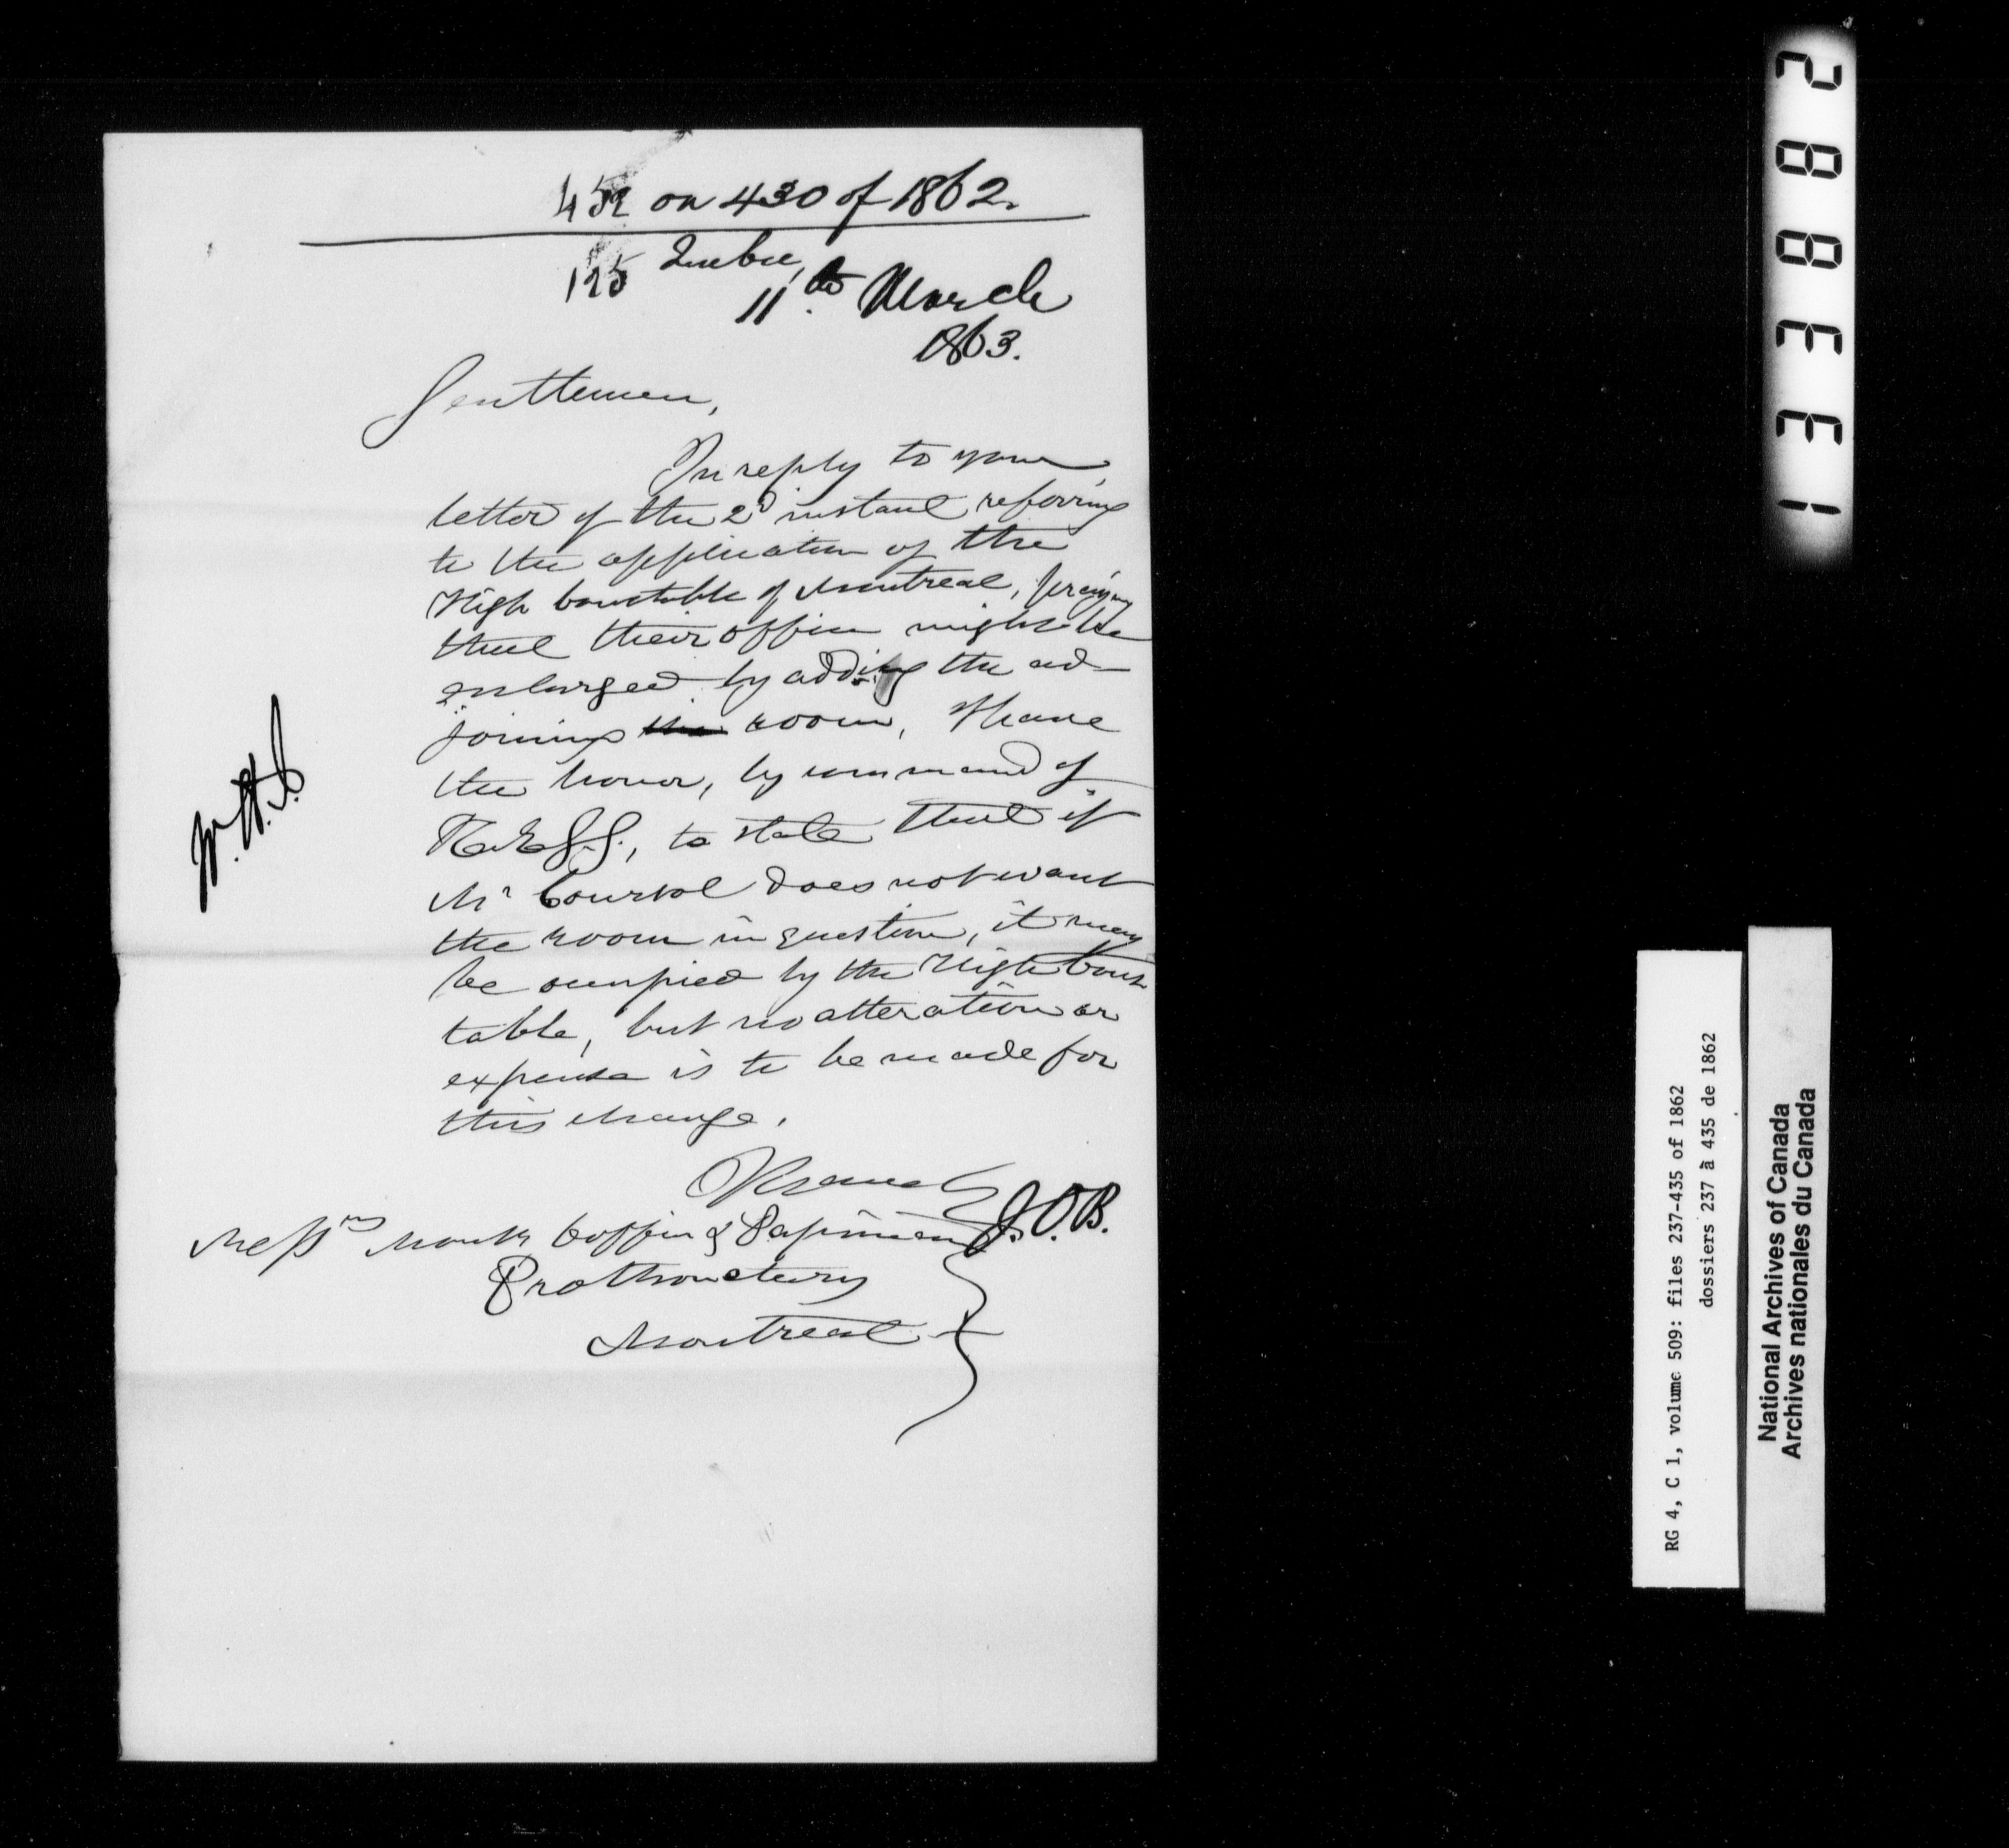 452 on 430 of 1862.
125 Quebec,
11th March
1863.
Gentlemen,
In reply to your
letter of the 2d instant referring
to the application of the
High Constable of Montreal, praying
that their office might be
enlarged by adding the ad-
joining the room, I have
the honor, by command of
H. E. G. G., to state that if
Mr Coursol does not want
the room in question, it may
be occupied by the High Cons-
table, but no alteration or
expense is to be made for
this change.
J.O.B.
Messrs Monk Coffin & Papineau
Prothonotary
Montreal
RG 4, C 1, volume 509: files 237-435 of 1862
dossiers 237 à 435 de 1862
National Archives of Canada
Archives nationales du Canada
133882